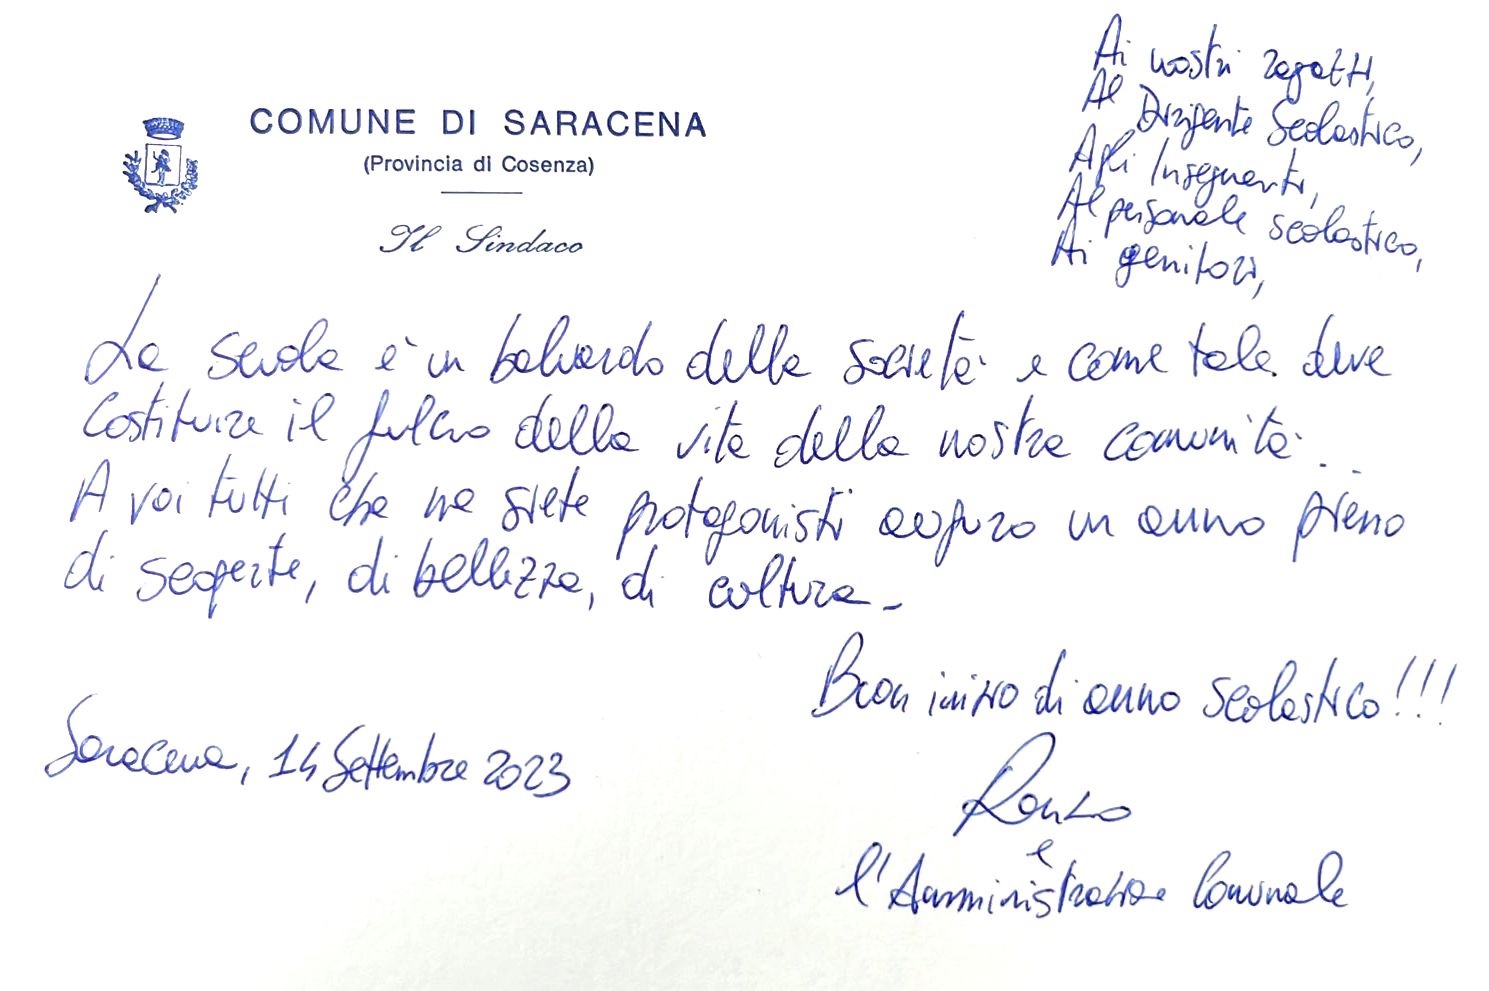 COMUNE DI SARACENA
(Provincia di Cosenza)
Il Sindaco
Ai nostri ragazzi,
Al Dirigente Scolastico,
Agli Insegnanti,
Al personale scolastico,
Ai genitori,
La scuola è un baluardo della società e come tale deve
costituire il fulcro della vita della nostra comunità..
A voi tutti che ne siete protagonisti auguro un anno pieno
di scoperte, di bellezza, di cultura-
Buon inizio di anno scolastico!!!
Saracena, 14 Settembre 2023
Renzo
e
l'Amministrazione Comunale